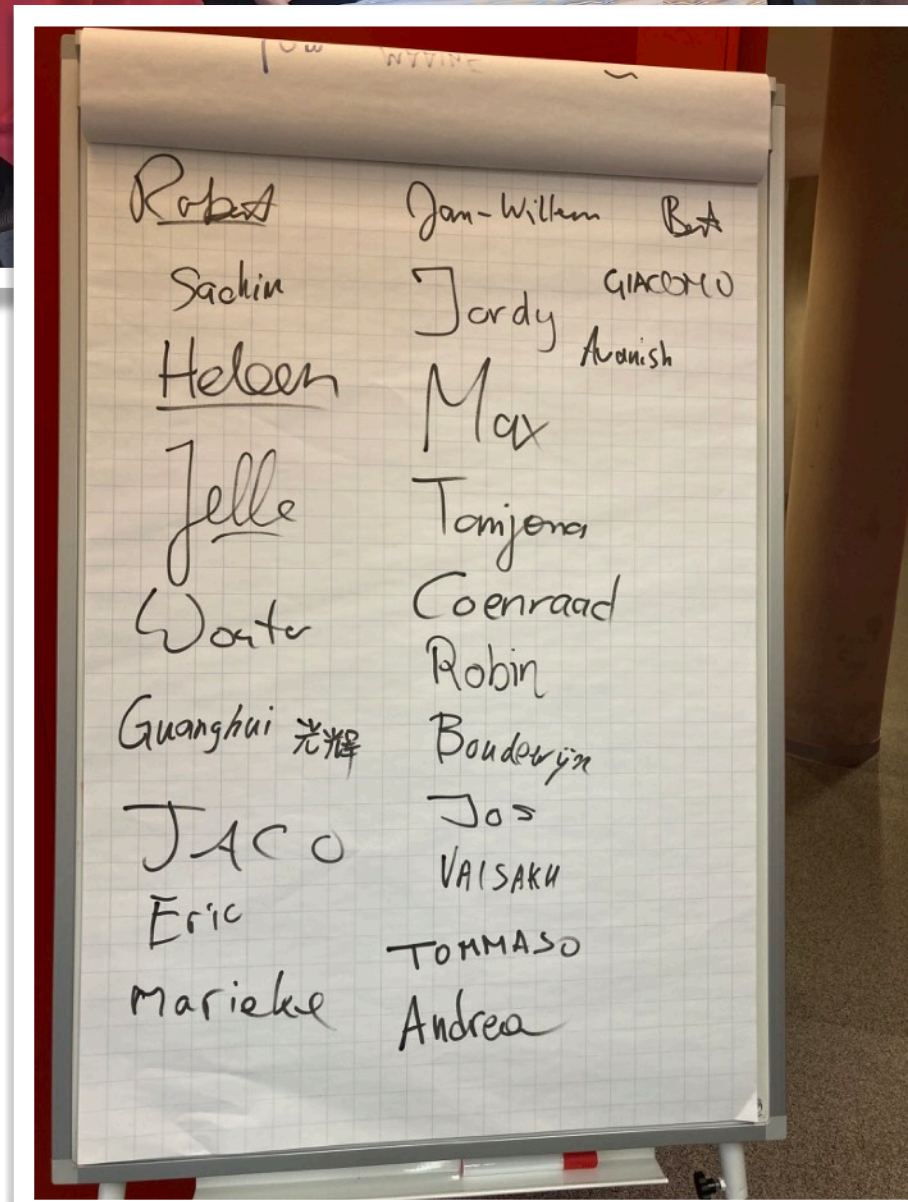 Robert
Sachin
Heleen
Jelle
Wouter
Guanghui 光辉
JACO
Eric
Marieke
Jan-Willem
Jordy
Max
Tomjona
Coenraad
Robin
Boudewijn
Jos
VAISAKH
TOMMASO
Andrea
Bert
GIACOMO
Avanish